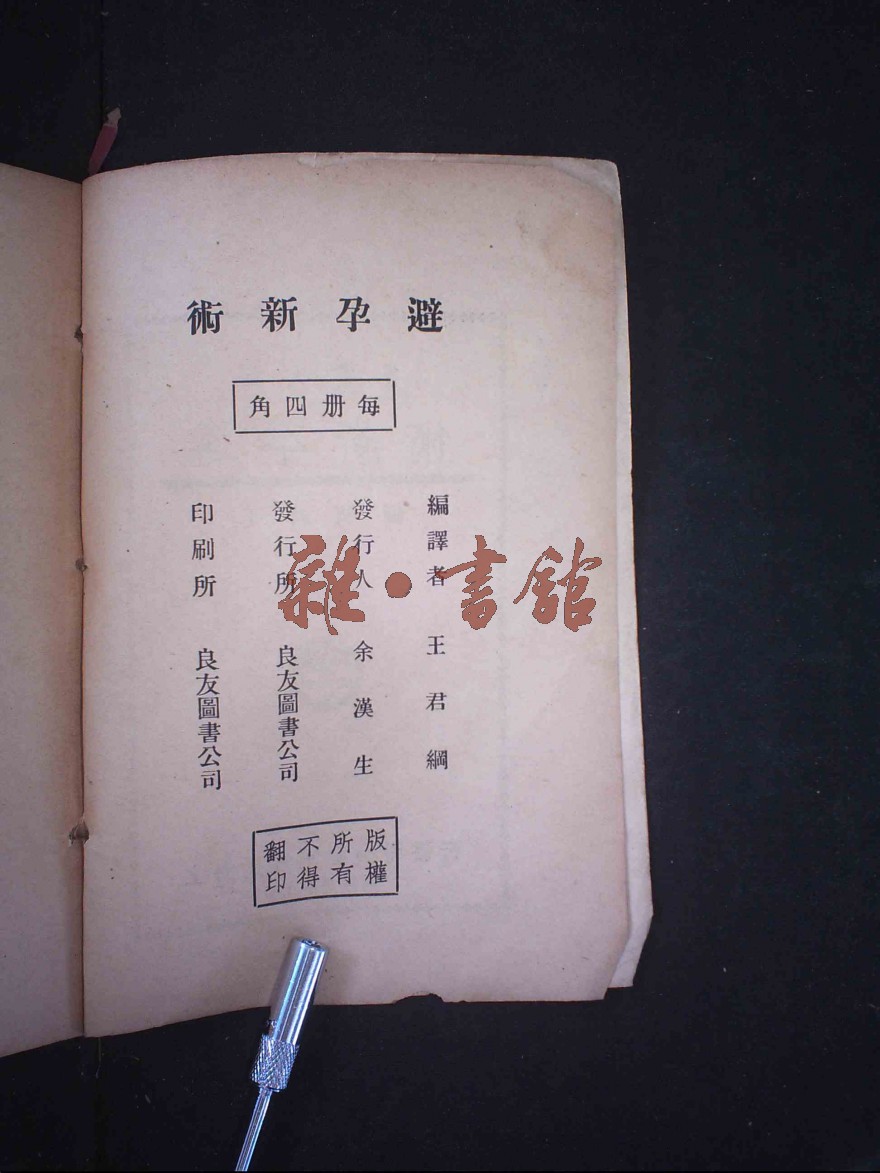 避孕新術
每册四角
編譯者 王君綱
發行人 余漢生
發行所 良友圖書公司
印刷所 良友圖書公司
版權所有不得翻印
雜·書館